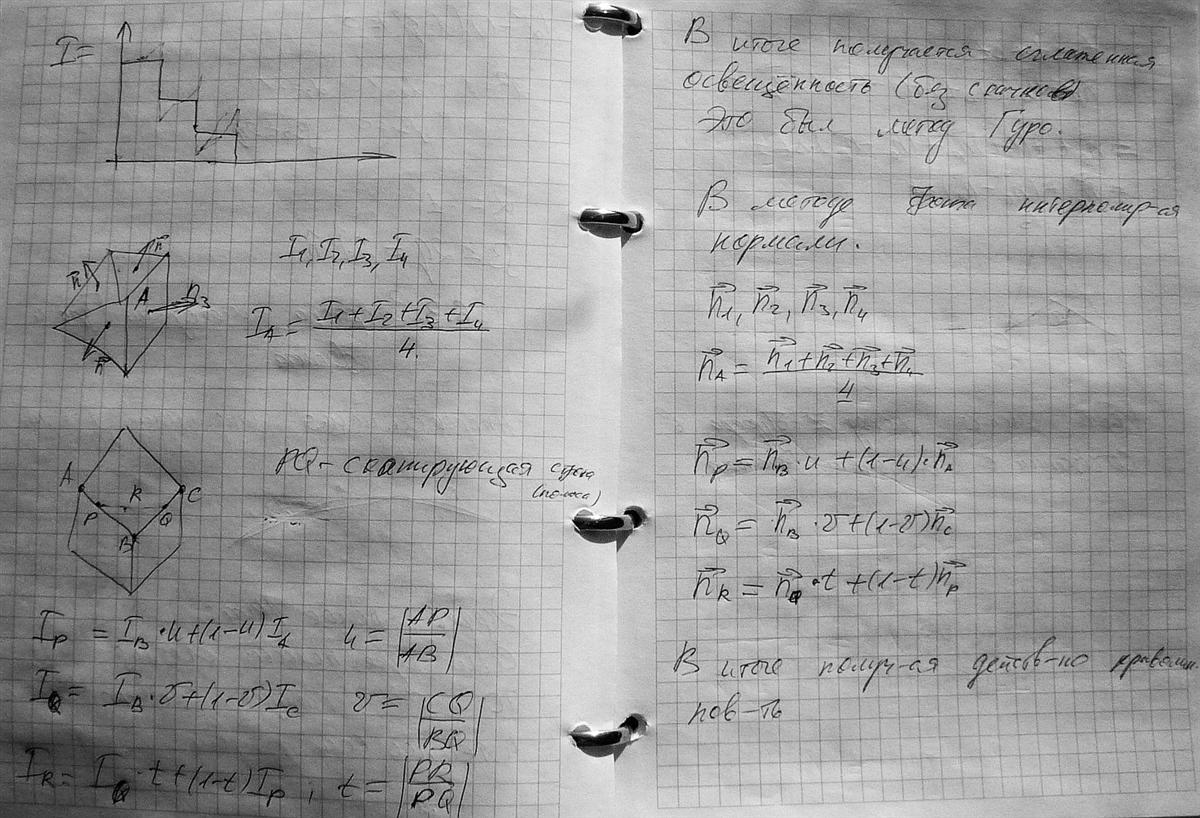 I =
n⃗
n⃗
A
n⃗3
n⃗
I1, I2, I3, I4
I_A = (I1 + I2 + I3 + I4) / 4.
A
P
R
Q
C
B
PQ – сканирующая
(полоса)
I_P = I_B · u + (1-u) I_A   u = |AP / AB|
I_Q = I_B · v + (1-v) I_C   v = |CQ / BQ|
I_R = I_Q · t + (1-t) I_P ; t = |PR / PQ|
В итоге получается сглаженная
освещённость (без скачков)
Это был метод Гуро.
В методе Фонга интерполир-ая
нормали.
n⃗1, n⃗2, n⃗3, n⃗4
n⃗_A = (n⃗1 + n⃗2 + n⃗3 + n⃗4) / 4
n⃗_P = n⃗_B · u + (1-u) · n⃗_A
n⃗_Q = n⃗_B · v + (1-v) n⃗_C
n⃗_R = n⃗_Q · t + (1-t) n⃗_P
В итоге получ-ая действ-но криволин
пов-ть